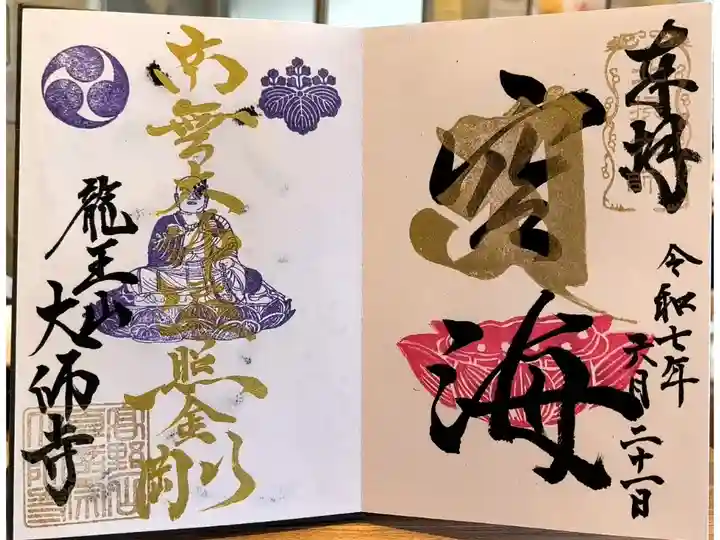 奉拝
空海
令和七年
六月二十一日
南無大師遍照金剛
龍王山
大師寺